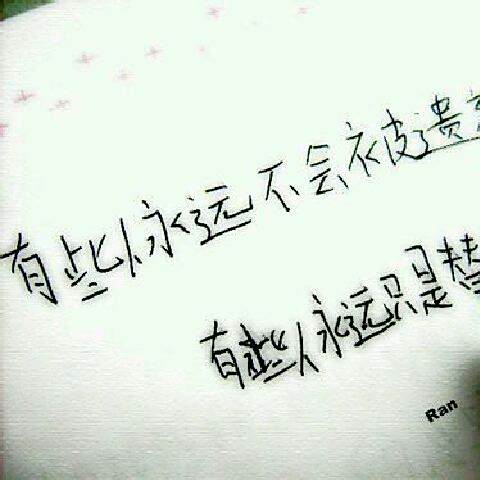 有些人永远不会被遗
有些人永远只是替
Ran